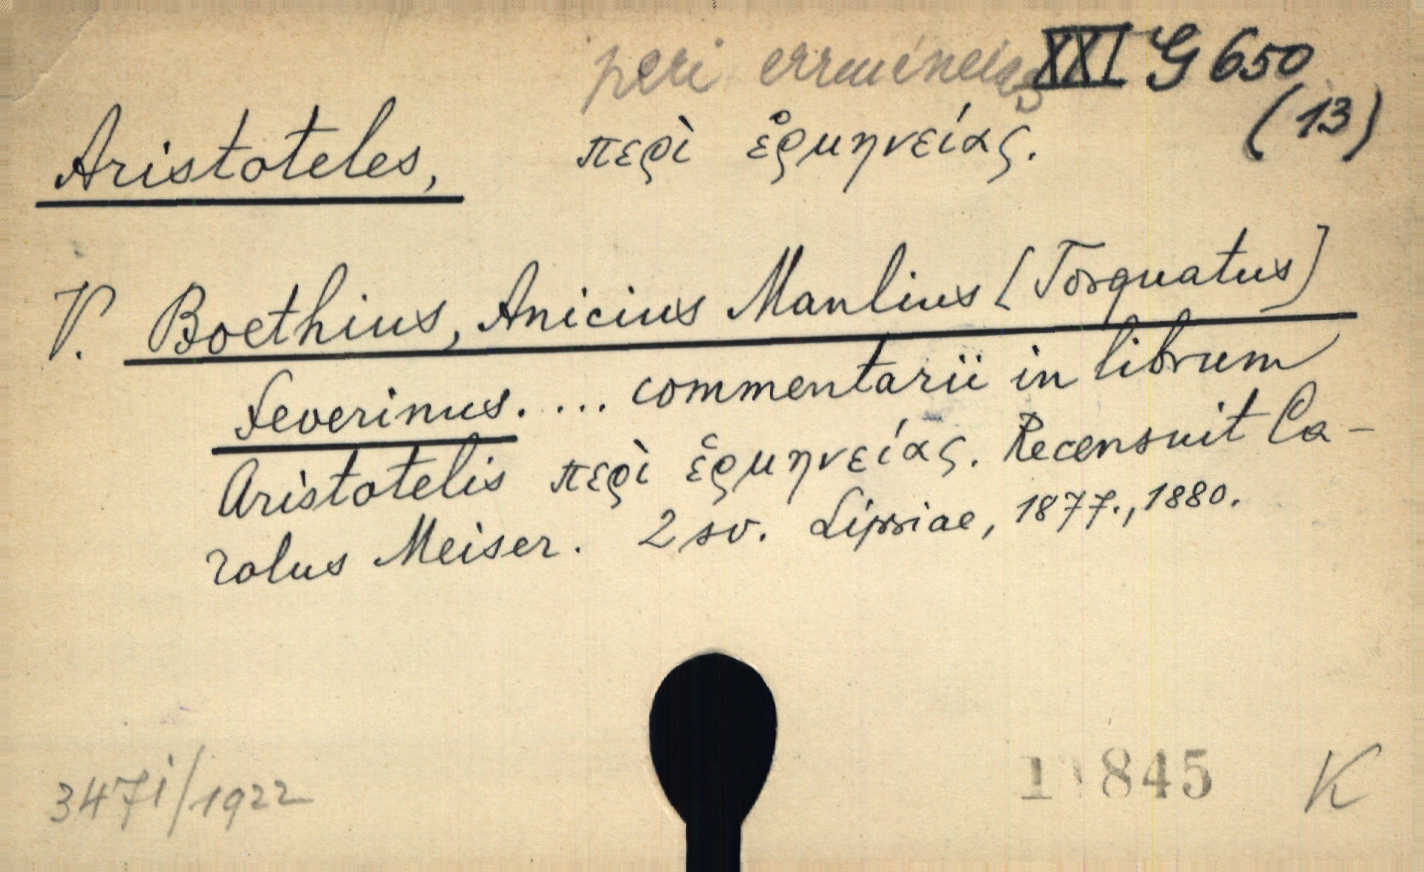 peri ermineias XXI G 650
(13)
Aristoteles, περὶ ἑρμηνείας.
V. Boethius, Anicius Manlius [Torquatus]
Severinus. ... commentarii in librum
Aristotelis περὶ ἑρμηνείας. Recensuit Ca-
rolus Meiser. 2 sv. Lipsiae, 1877., 1880.
347i/1922 845 K